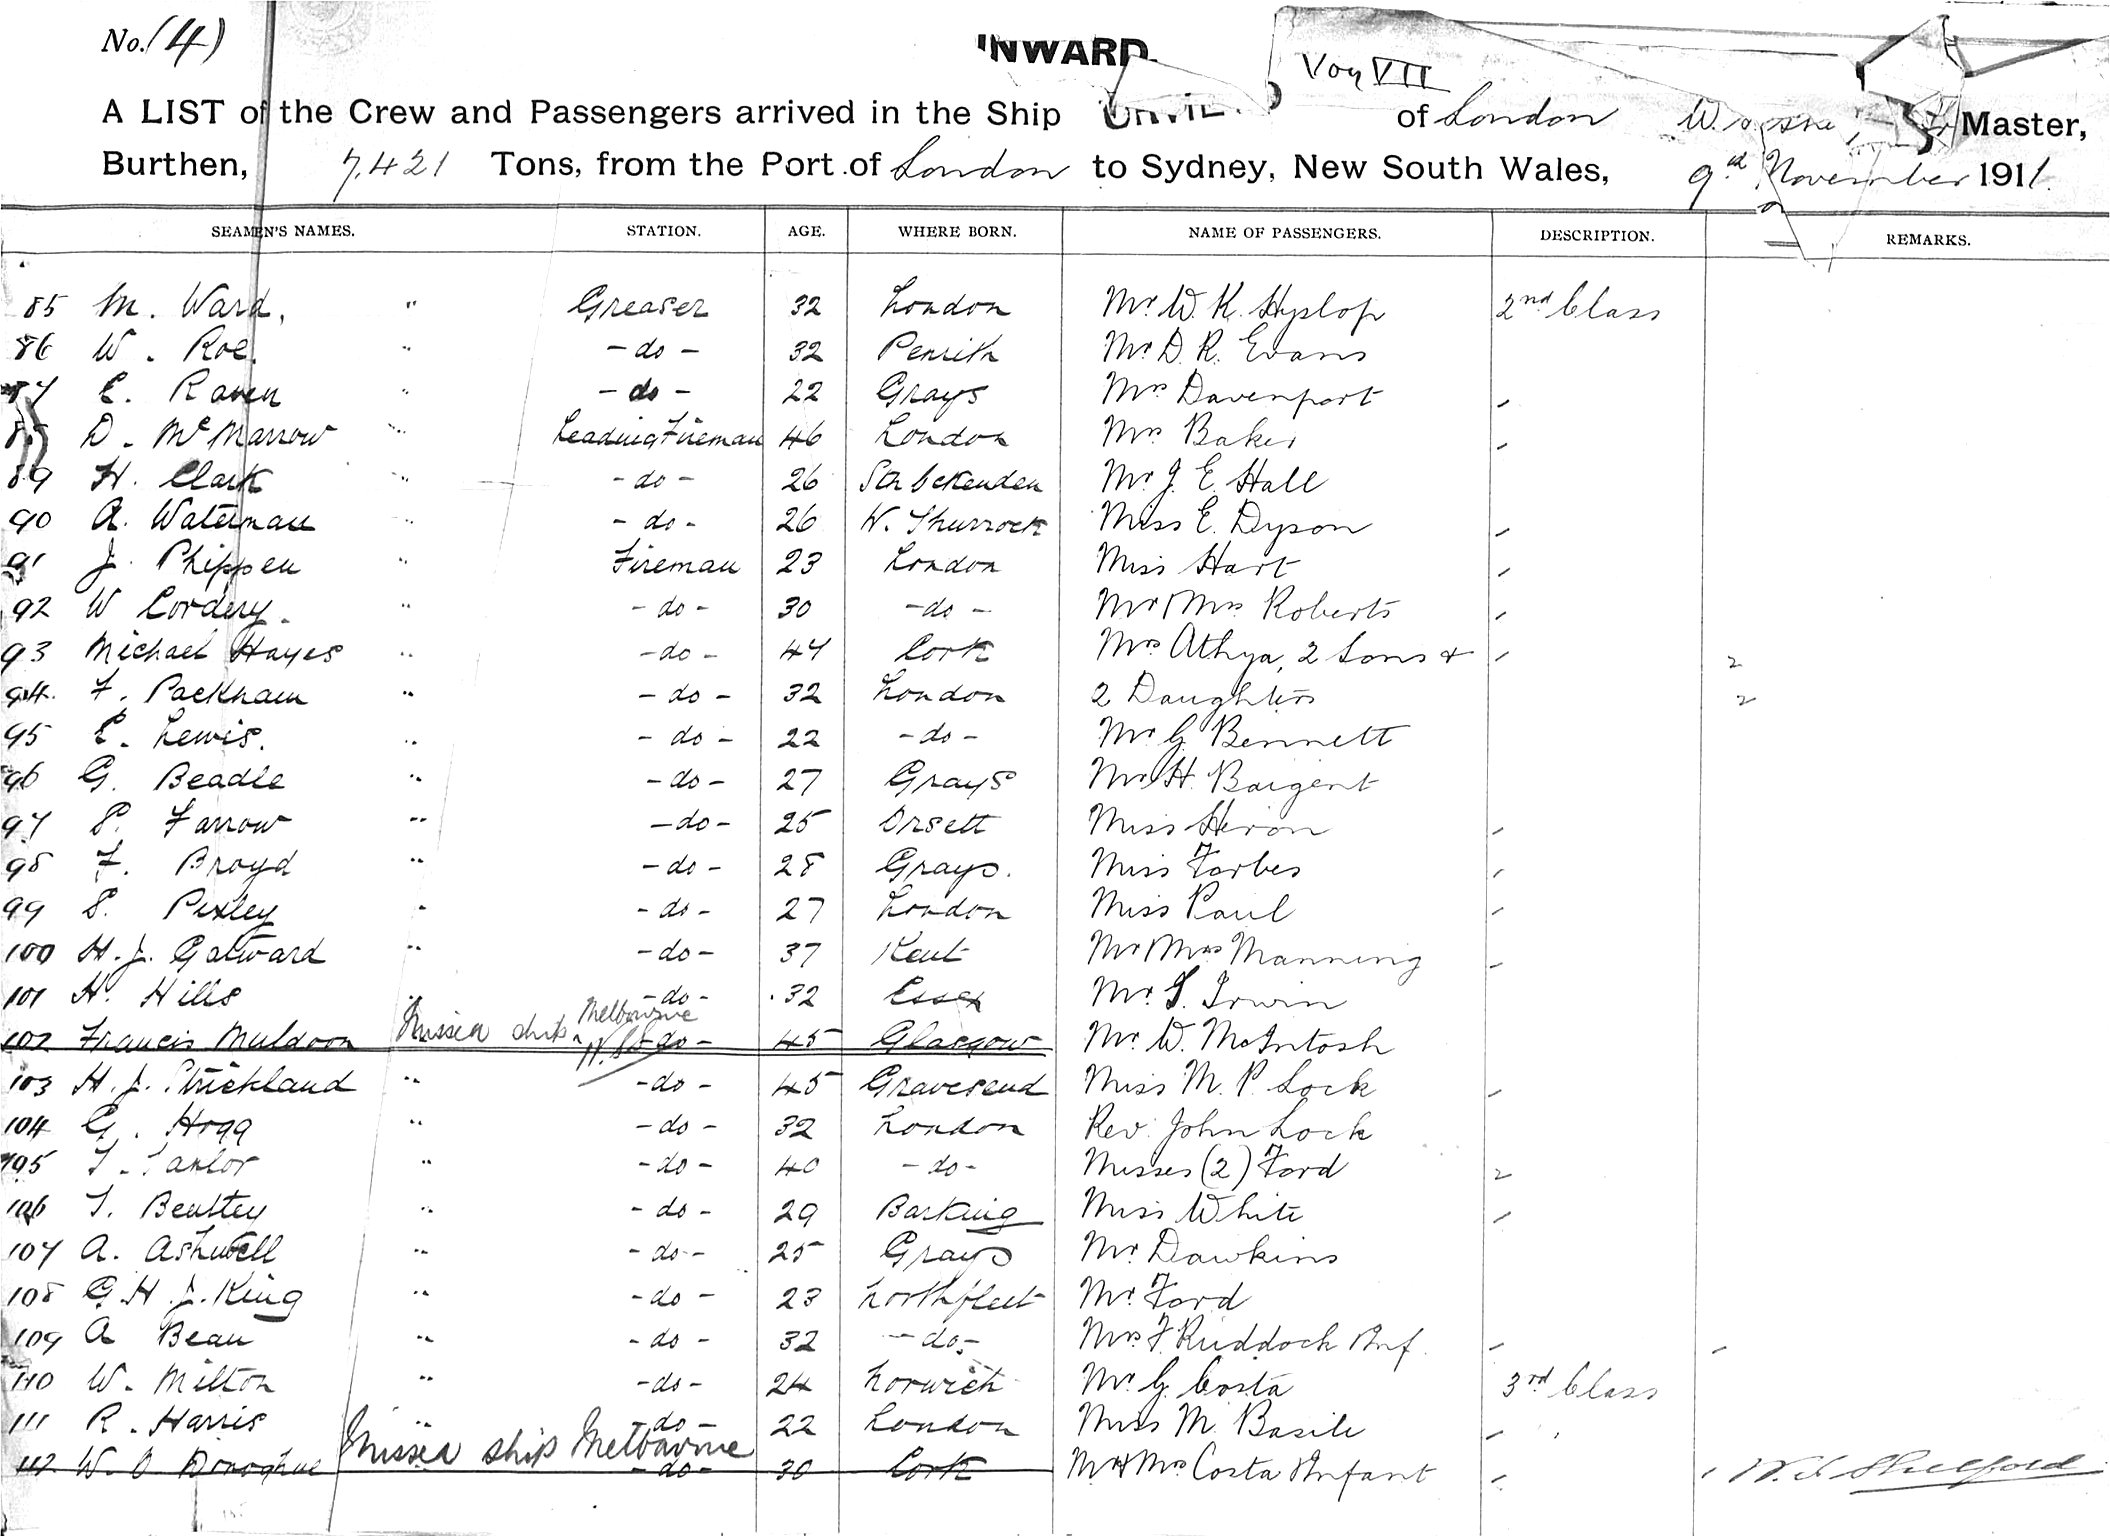 No. (4)
INWARD
Voy VII
A LIST of the Crew and Passengers arrived in the Ship of London W. Master,
Burthen, 7,421 Tons, from the Port of London to Sydney, New South Wales, 9th November 1911.
SEAMEN'S NAMES. STATION. AGE. WHERE BORN. NAME OF PASSENGERS. DESCRIPTION. REMARKS.
85 M. Ward, " Greaser 32 London Mr W. K. Hyslop 2nd Class
86 W. Roe. " - do - 32 Penrith Mr D. R. Evans
87 E. Raven " - do - 22 Grays Mrs Davenport
88 D. McMarrow " Leading Fireman 46 London Mrs Baker
89 H. Clark " - do - 26 Mr J. E. Hall
90 A. Waterman " - do - 26 W. Thurrock Miss E. Dyson
91 J. Phippen " Fireman 23 London Miss Hart
92 W Cordery. " - do - 30 - do - Mr & Mrs Roberts
93 Michael Hayes " - do - 47 Cork Mrs Athya, 2 Sons & 2
94. F. Packham " - do - 32 London 2 Daughters 2
95 E. Lewis. " - do - 22 - do - Mr G Bennett
96 G. Beadle " - do - 27 Grays Mr H. Baigent
97 S. Farrow " - do - 25 Orsett Miss Heron
98 F. Broyd " - do - 28 Grays. Miss Forbes
99 S. Pixley " - do - 27 London Miss Paul
100 H. J. Gatward " - do - 37 Kent Mr & Mrs Manning
101 H. Hills " - do - 32 Essex Mr S. Irwin
102 Francis Muldoon Missed ship Melbourne - do - 45 Glasgow Mr. W. McIntosh
103 H. J. Strickland " - do - 45 Gravesend Miss M. P. Lock
104 G. Hogg " - do - 32 London Rev. John Lock
105 T. Taylor " - do - 40 - do - Misses (2) Ford 2
106 T. Benttey " - do - 29 Barking Miss White
107 A. Ashwell " - do - 25 Grays Mr. Dawkins
108 G. H. J. King " - do - 23 Northfleet Mr. Ford
109 A Bean " - do - 32 - do - Mrs F. Ruddock & Inf.
110 W. Milton " - do - 24 Norwich Mr. G. Costa 3rd Class
111 R. Harris " - do - 22 London Miss M. Basile
112 W. O Donoghue Missed ship Melbourne - do - 30 Cork Mr & Mrs Costa & Infant W. S. Shelford